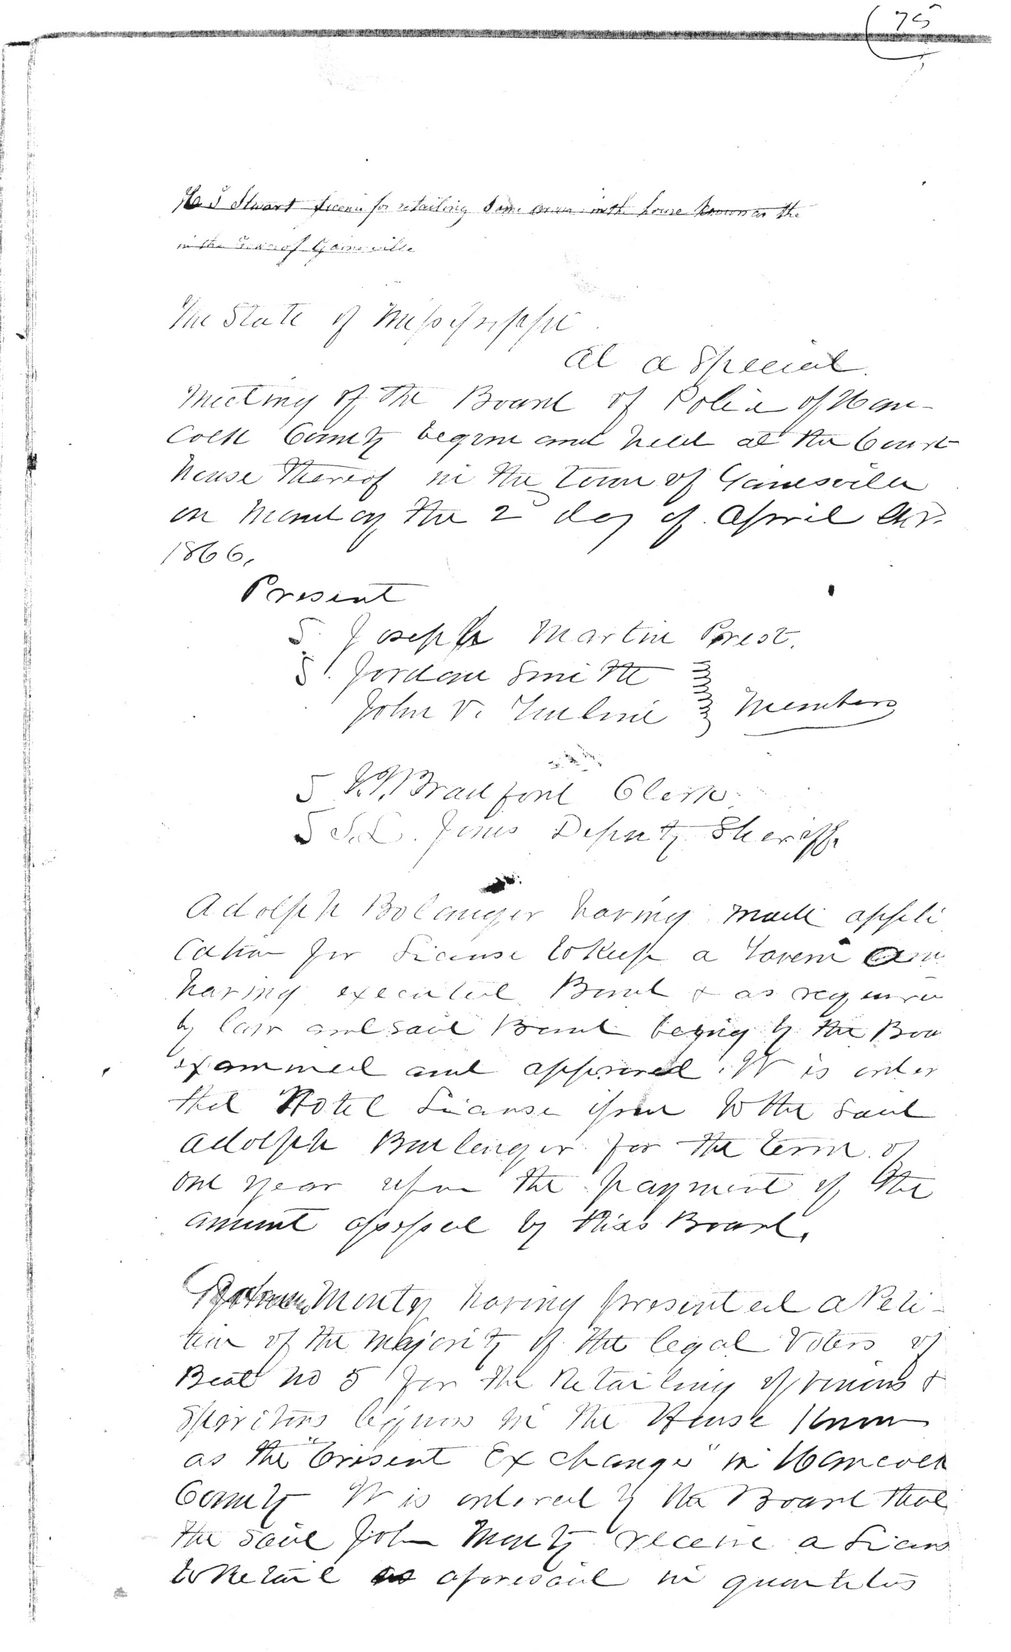 75
H S Stuart License for retailing house known as the
in the Town of Gainesville
The State of Mississippi
At a Special
Meeting of the Board of Police of Han-
cock County begun and held at the Court
house thereof in the town of Gainesville
on Monday the 2d day of April AD.
1866.
Present
S. Joseph Martin Prest.
S. Jordan Smith
John V. Toulme } Members
S Bradford Clerk
S S.L. Jones Deputy Sheriff
Adolph Bolanger having made appli
cation for License to Keep a Tavern
having executed Bond & as require
by law and said Bond being by the Boa
examined and approved. It is order
that Hotel License issue to the said
Adolph Boulenger for the term of
one year upon the payment of the
amount assessed by this Board.
Montz having presented a Peti-
tion of the Majority of the legal Voters of
Beat no 5 for the Retailing of vinous &
Spiritous liquors in the House Known
as the "Crisent Exchange" in Hancock
County It is ordered by the Board that
the said John Montz receive a Licens
to Retail as aforesaid in quantities